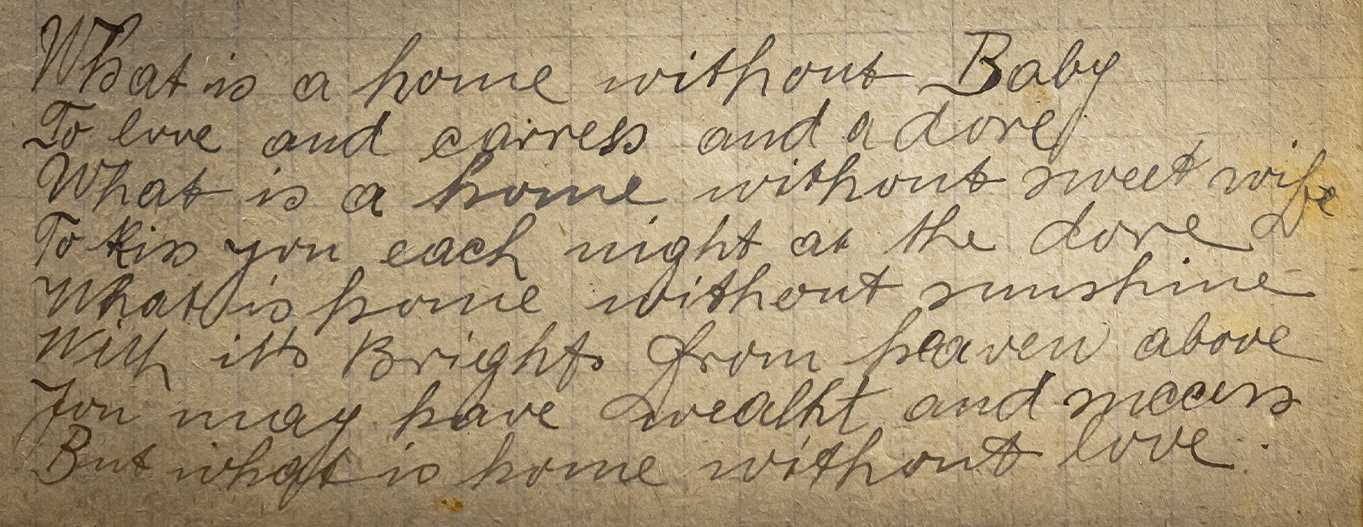 What is a home without Baby
To love and carress and a dore
What is a home without sweet wife
To kiss you each night at the dore
What is home without sunshine
With it's Brights from heaven above
You may have wealht and success
But what is home without love.